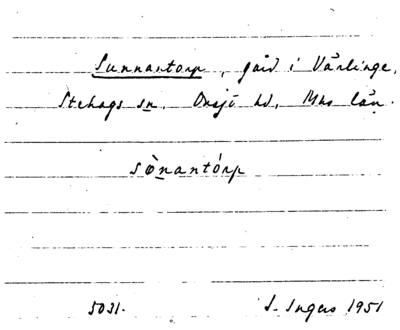 Sunnantorp, gård i Vårlinge,
Stehags sn, Onsjö hd, Mhs län.
sònantórp
5031. I. Ingers 1951